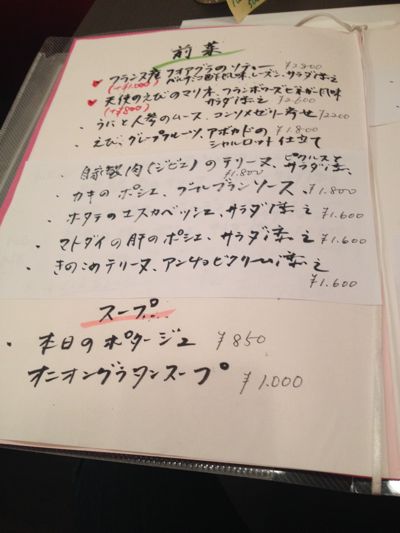 前菜
フランス産フォアグラのソテー ¥2800
(+¥1,000) ベルガコ酢風味、レーズン、サラダ添え
天使のえびのマリネ、フランボワーズビネガー風味
(+¥800) サラダ添え ¥2.600
・うにと人参のムース、コンソメゼリー寄せ ¥2200
・えび、グレープフルーツ、アボカドの ¥1.800
シャルロット仕立て
・自家製肉(ジビエ)のテリーヌ、ピクルスと
¥1.800 サラダ添え
・カキのポシェ、ブールブランソース、¥1.800
・ホタテのエスカベッシェ、サラダ添え ¥1.600
・マトダイの肝のポシェ、サラダ添え ¥1.600
・きのこのテリーヌ、アンチョビクリーム添え
¥1.600
スープ
・本日のポタージュ ¥850
オニオングラタンスープ ¥1.000